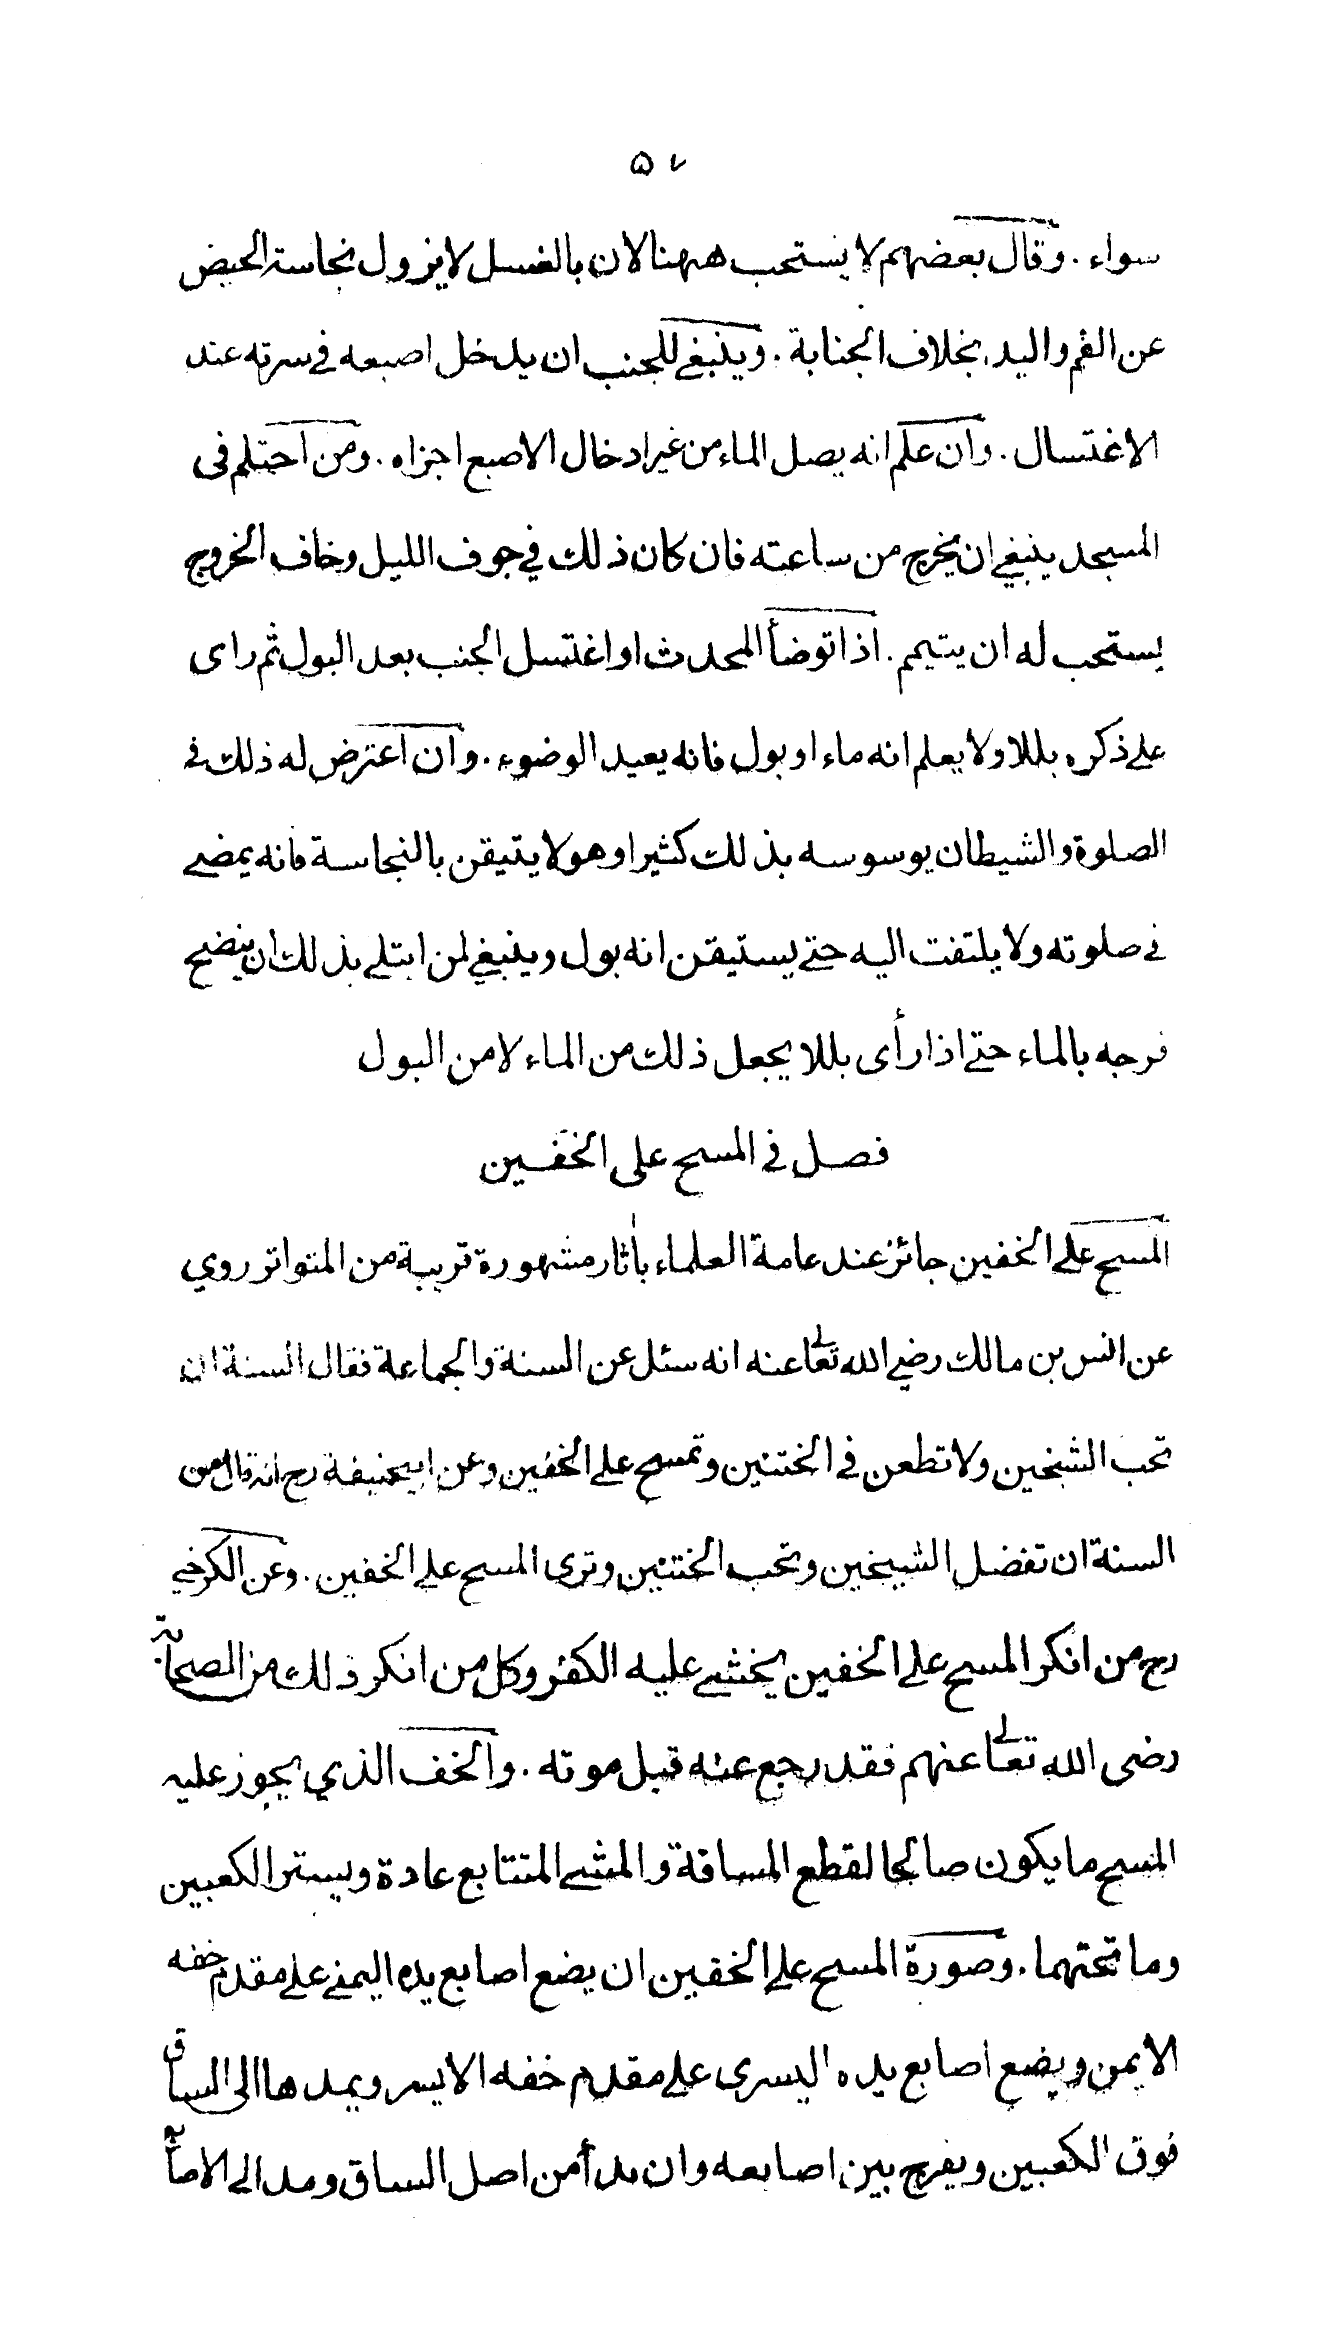 ٥٧
سواء . وقال بعضهم لا يستحب ههنا لان بالغسل لا يزول نجاسة الحيض
عن الفم واليد بخلاف الجنابة . وينبغي للجنب ان يدخل اصبعه في سرته عند
الاغتسال . وان علم انه يصل الماء من غير ادخال الاصبع اجزاه . ومن احتلم في
المسجد ينبغي ان يخرج من ساعته فان كان ذلك في جوف الليل وخاف الخروج
يستحب له ان يتيمم . اذا توضأ المحدث او اغتسل الجنب بعد البول ثم راى
على ذكره بللا ولا يعلم انه ماء او بول فانه يعيد الوضوء . وان اعترض له ذلك في
الصلوة والشيطان يوسوسه بذلك كثيرا وهو لا يتيقن بالنجاسة فانه يمضي
في صلوته ولا يلتفت اليه حتى يستيقن انه بول وينبغي لمن ابتلي بذلك ان ينضح
فرجه بالماء حتى اذا رأى بللا يجعل ذلك من الماء لا من البول
فصل في المسح على الخفين
المسح على الخفين جائز عند عامة العلماء بأثار مشهورة قريبة من المتواتر روي
عن انس بن مالك رضي الله تعالى عنه انه سئل عن السنة والجماعة فقال السنة ان
تحب الشيخين ولا تطعن في الختنين وتمسح على الخفين وعن ابيحنيفة رح انه قال من
السنة ان تفضل الشيخين وتحب الختنين وترى المسح على الخفين . وعن الكرخي
رح من انكر المسح على الخفين يخشى عليه الكفر وكل من انكر ذلك من الصحابة
رضى الله تعالى عنهم فقد رجع عنه قبل موته . والخف الذي يجوز عليه
المسح ما يكون صالحا لقطع المسافة والمشي المتتابع عادة ويستر الكعبين
وما تحتهما . وصورة المسح على الخفين ان يضع اصابع يده اليمنى على مقدم خفه
الايمن ويضع اصابع يده اليسرى على مقدم خفه الايسر ويمدها الى الساق
فوق الكعبين ويفرج بين اصابعه وان بدأ من اصل الساق ومد الى الاصابع